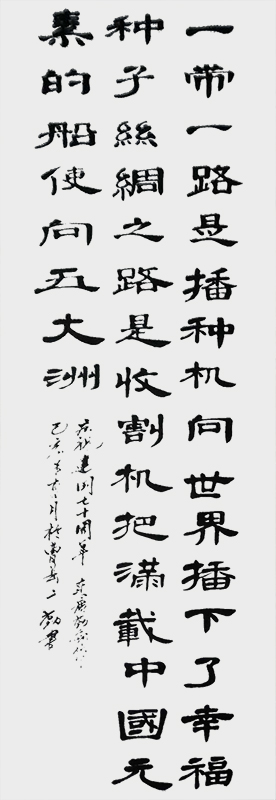 一帶一路是播种机向世界播下了幸福
种子絲綢之路是收割机把滿載中國元
素的船使向五大洲
庆祝建国七十周年
己亥年 月於 書